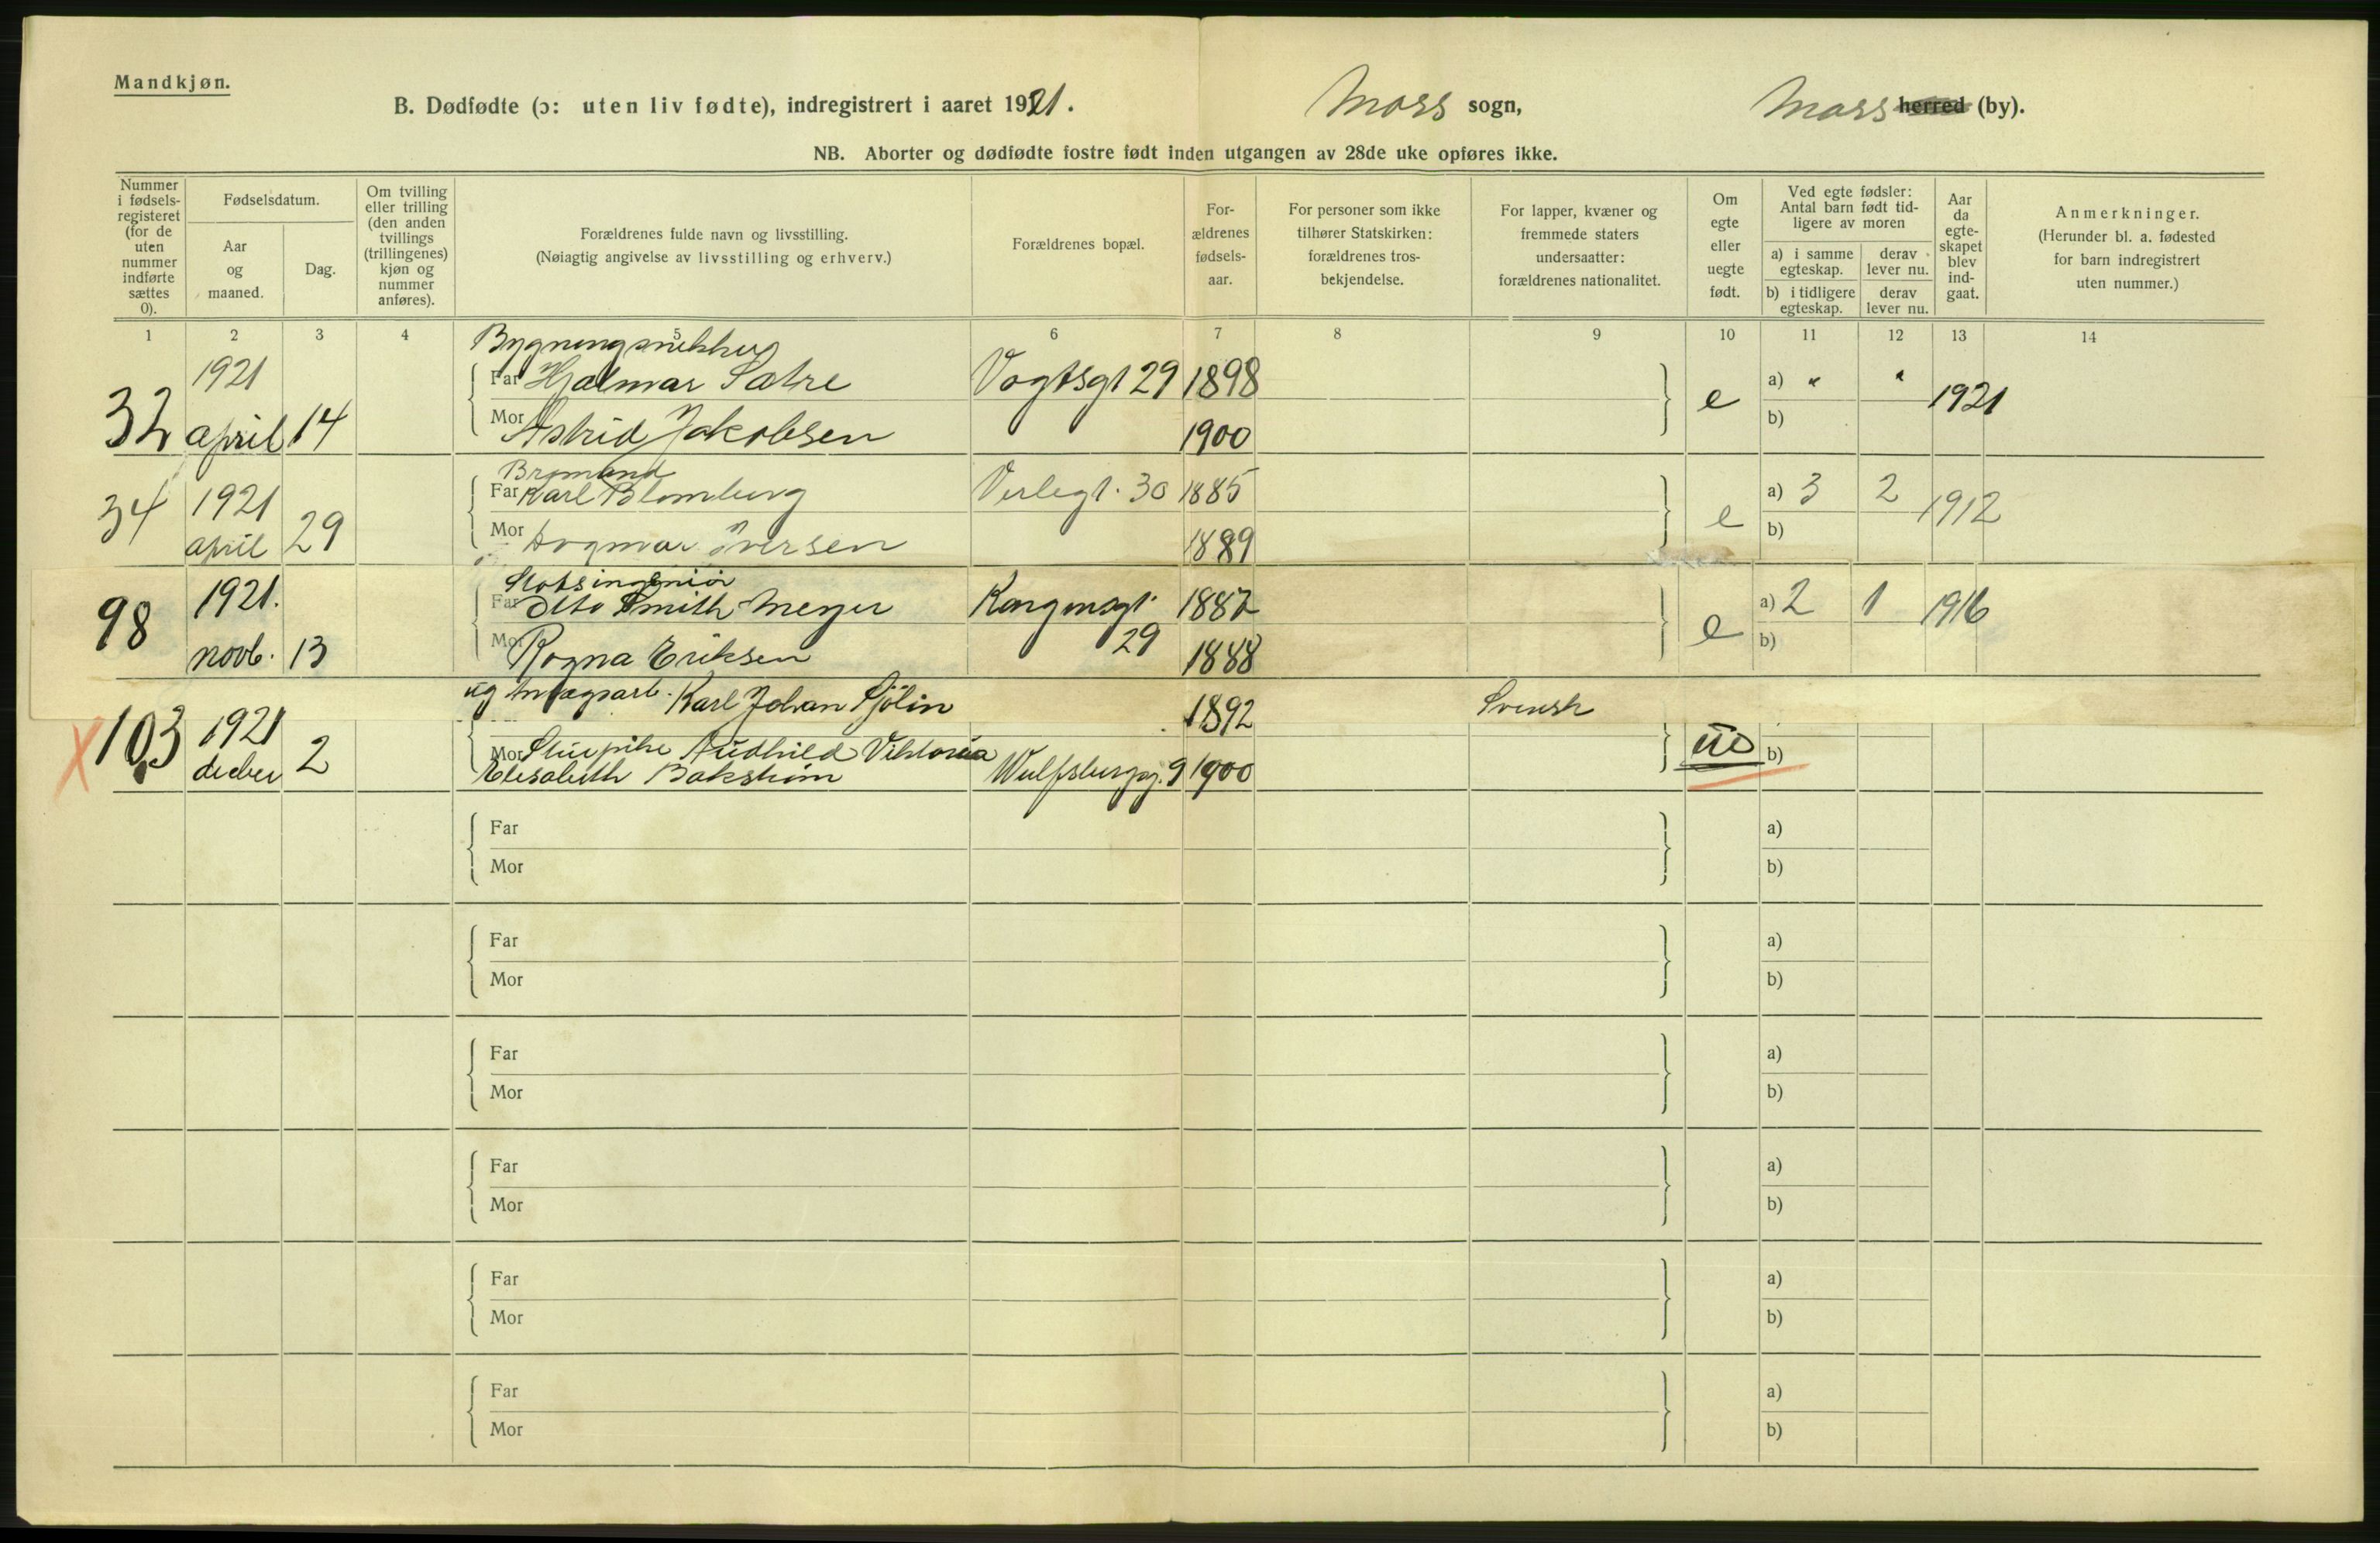 Mandkjøn.
B. Dødfødte (ɔ: uten liv fødte), indregistrert i aaret 1921. Moss sogn, Moss herred (by).
NB. Aborter og dødfødte fostre født inden utgangen av 28de uke opføres ikke.
Nummer i fødsels-registeret (for de uten nummer indførte sættes 0).
Fødselsdatum.
Aar og maaned.
Dag.
Om tvilling eller trilling (den anden tvillings (trillingenes) kjøn og nummer anføres).
Forældrenes fulde navn og livsstilling.
(Nøiagtig angivelse av livsstilling og erhverv.)
Forældrenes bopæl.
For-ældrenes fødsels-aar.
For personer som ikke tilhører Statskirken: forældrenes tros-bekjendelse.
For lapper, kvæner og fremmede staters undersaatter: forældrenes nationalitet.
Om egte eller uegte født.
Ved egte fødsler: Antal barn født tid-ligere av moren
a) i samme egteskap.
derav lever nu.
b) i tidligere egteskap.
derav lever nu.
Aar da egte-skapet blev ind-gaat.
Anmerkninger.
(Herunder bl. a. fødested for barn indregistrert uten nummer.)
1 2 3 4 5 6 7 8 9 10 11 12 13 14
Bygningssnekker
1921 Far Hjalmar Sætre Vogtsgt 29 1898 a) " "
32 april 14 Mor Astrid Jakobsen 1900 e b) 1921
Brømand
34 1921 Far Karl Blomberg Verlegt. 30 1885 a) 3 2 1912
april 29 Mor Dagmar Iversen 1889 e b)
Statsingeniør
98 1921. Far Otto Smith Meyer Kongensgt. 1887 a) 2 1 1916
novb. 13 Mor Ragna Eriksen 29 1888 e b)
ug Karl Johan Sjölin 1892 Svensk
X 103 1921
decber 2 Mor Audhild Viktoria ue b)
Elisabeth Bakstrøm Wulfsbergsg. 9 1900
Far a)
Mor b)
Far a)
Mor b)
Far a)
Mor b)
Far a)
Mor b)
Far a)
Mor b)
Far a)
Mor b)